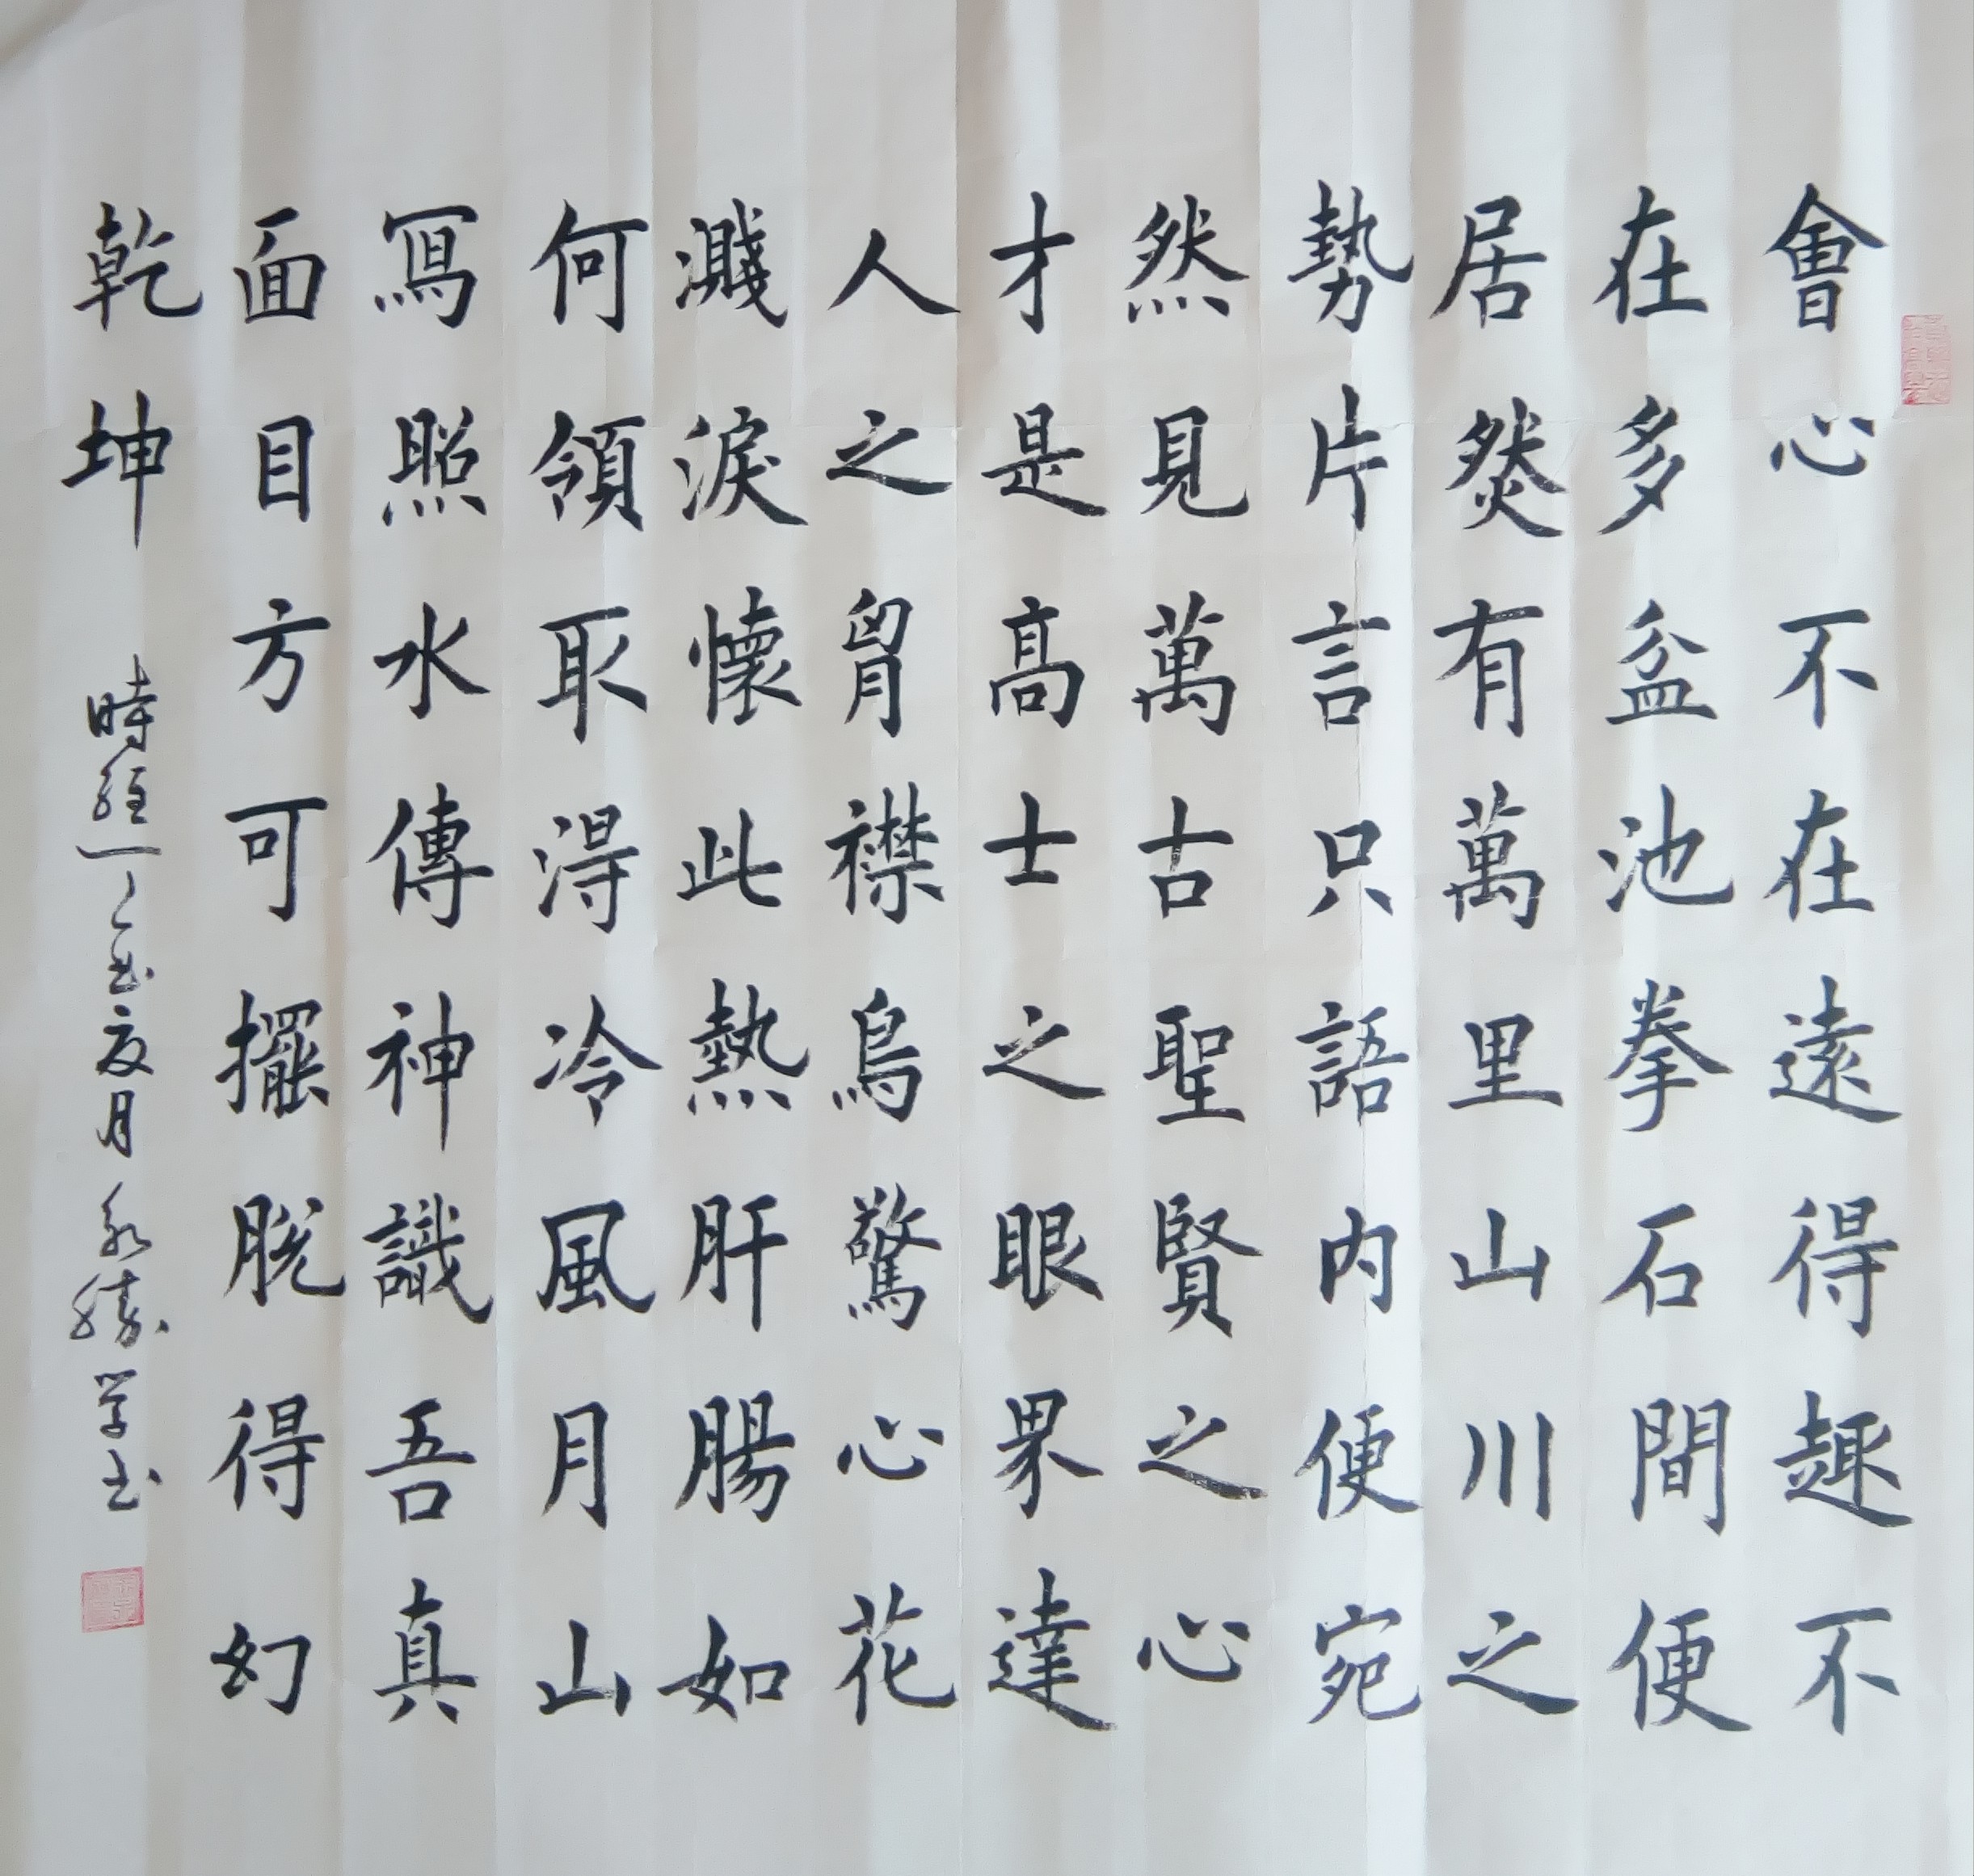 會心不在遠得趣不
在多盆池拳石間便
居然有萬里山川之
勢片言只語內便宛
然見萬古聖賢之心
才是高士之眼界達
人之胷襟鳥驚心花
濺淚懷此熱肝腸如
何領取得冷風月山
寫照水傳神識吾真
面目方可擺脫得幻
乾坤
時經一
夏月永勝学书